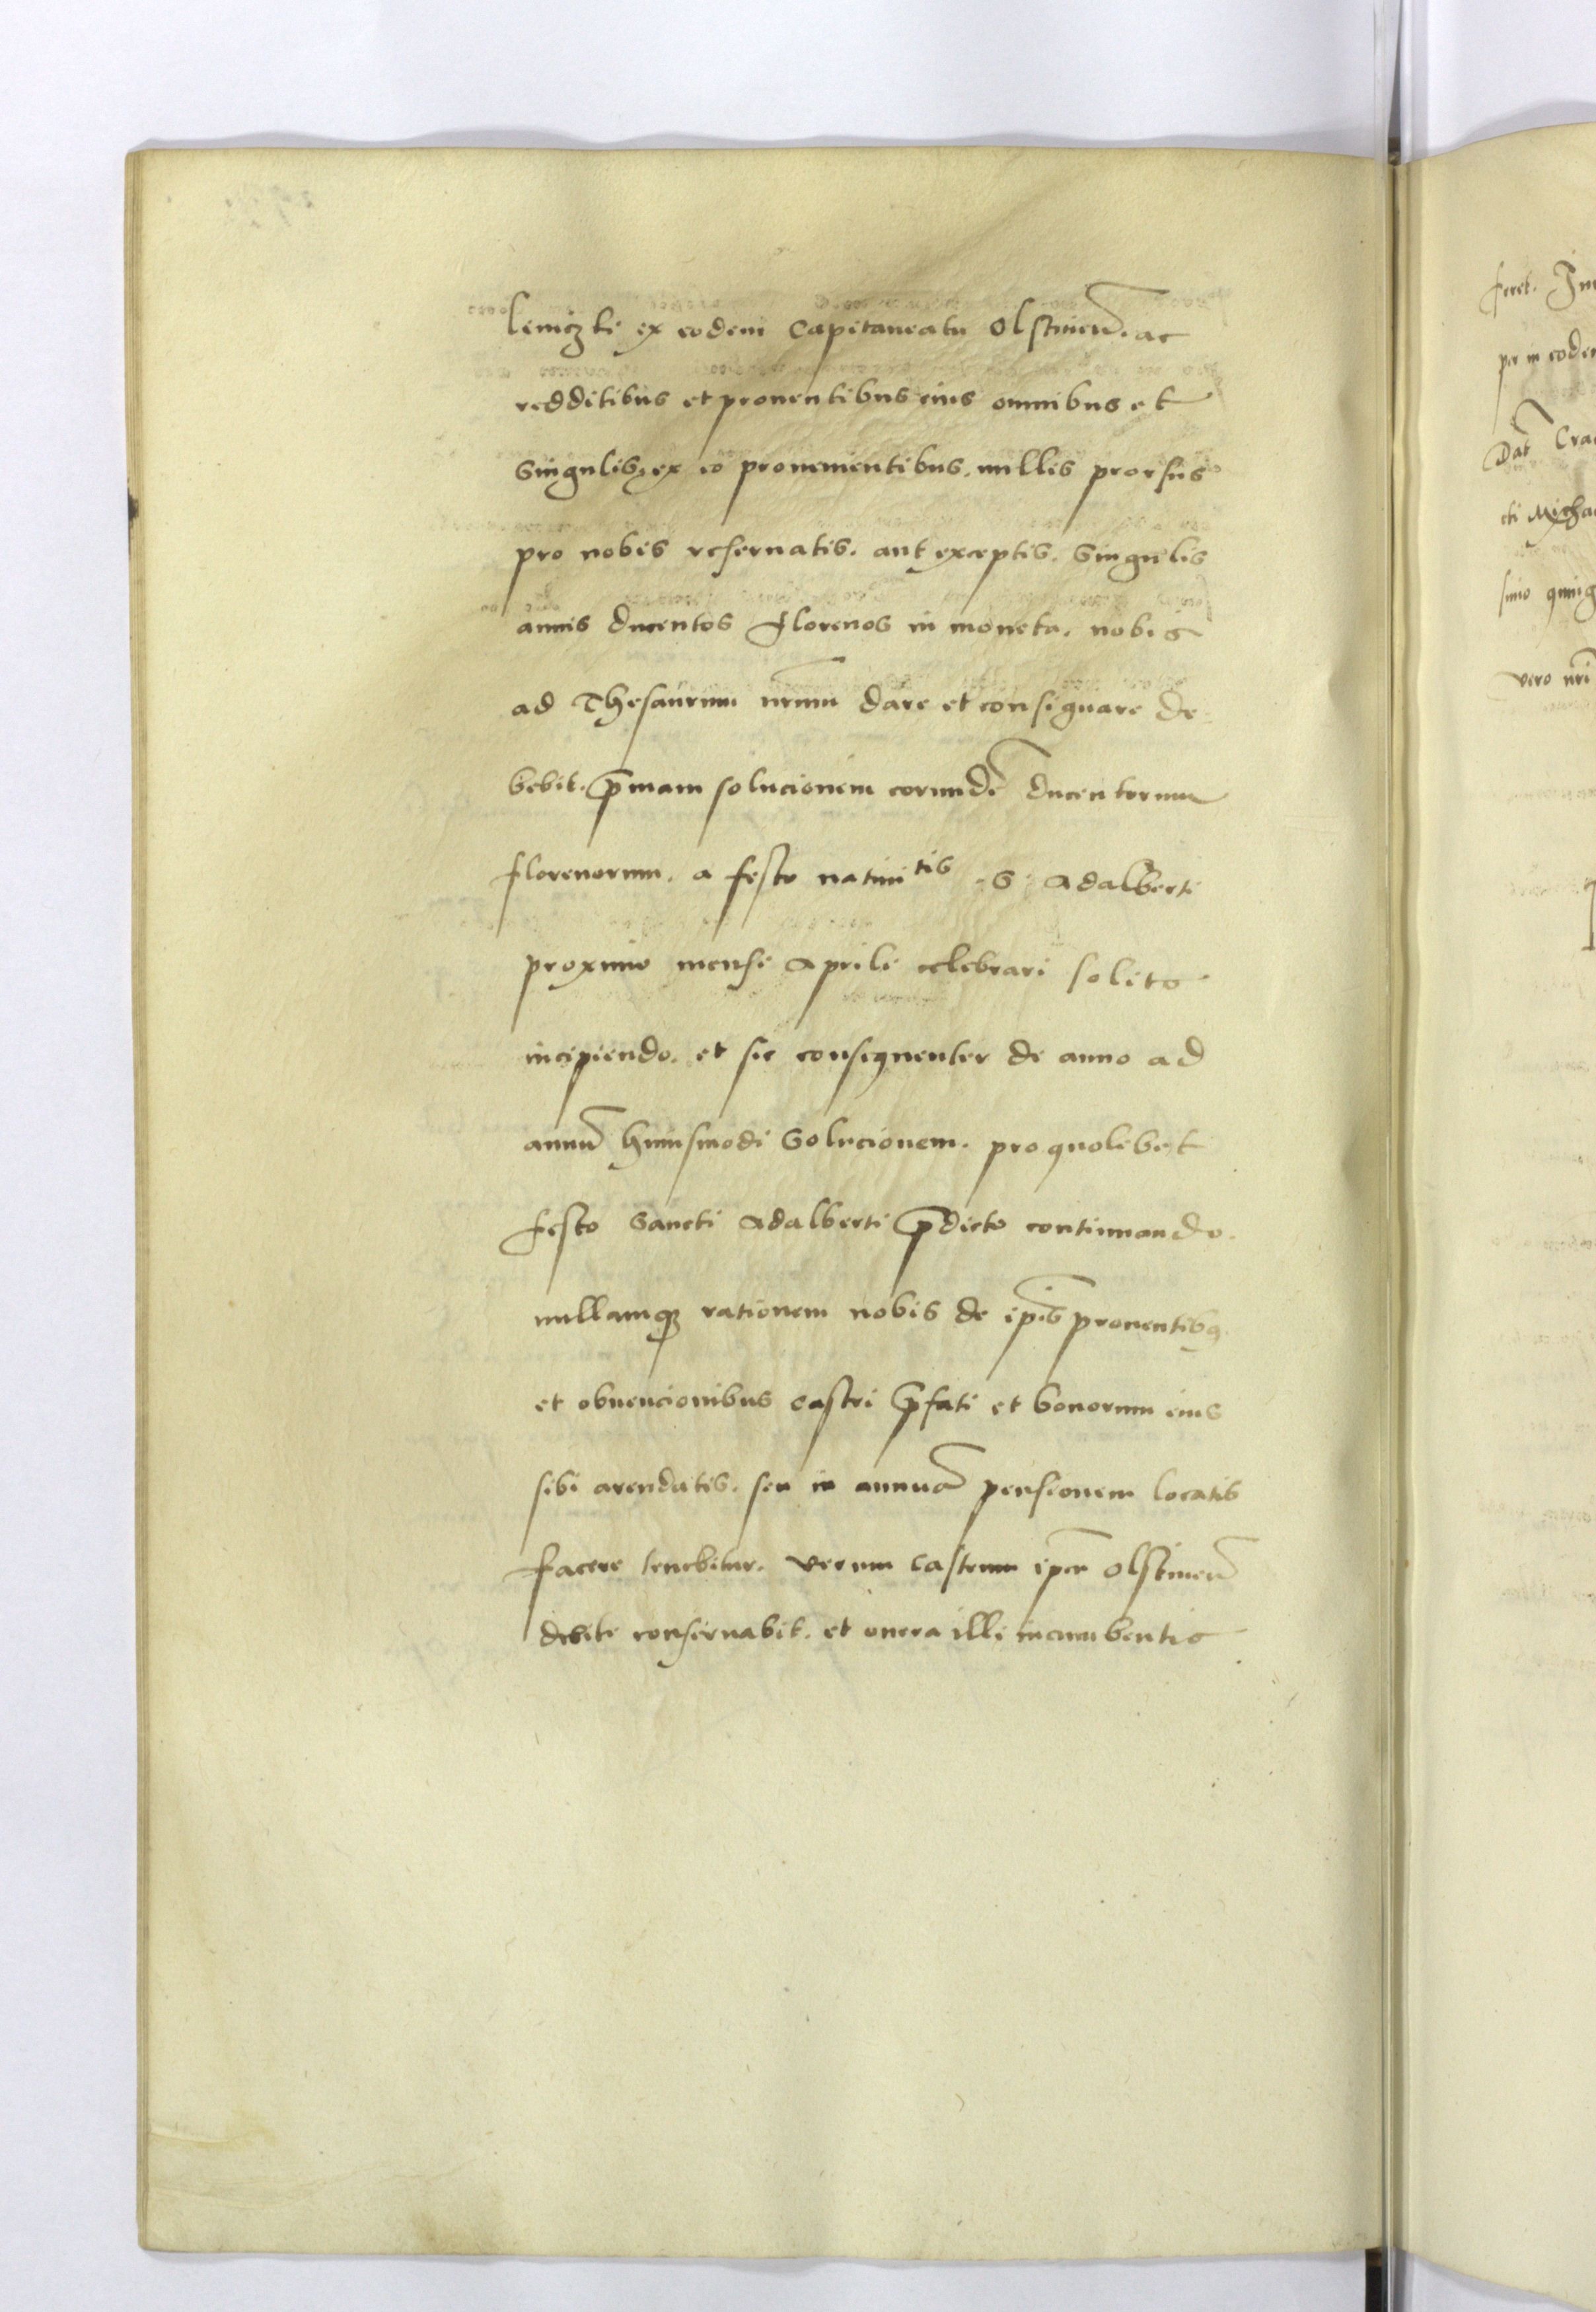 leniczki ex eodem Capitaneatu Olstinen̄. ac
redditibus et prouentibus eius omnibus et
singulis, ex eo prouenientibus. nullis prorsus
pro nobis reseruatis. aut exceptis. Singulis
annis ducentos florenos in moneta. nobis
ad Thesaurum nr̄um dare et consignare de
bebit. p̄mam solucionem eorund̄ ducentorum
florenorum. a festo natiuitis S. Adalberti
proximo mense Aprili celebrari solito
incipiendo. et sic consequenter de anno ad
annū huiusmodi Solucionem. pro quolibet
festo Sancti Adalberti p̄dicto continuando.
nullamq; rationem nobis de ip̄is prouentibq
et obuencionibus castri p̄fati et bonorum eius
sibi arendatis. seu in annuā pensionem locatis
facere tenebitur. verum castrum ip̄m Olstinen̄
debite conseruabit. et onera illi incumbentia
feret.
per in
Dat̄ Cra
cti Micha
simo quing
vero nr̄i